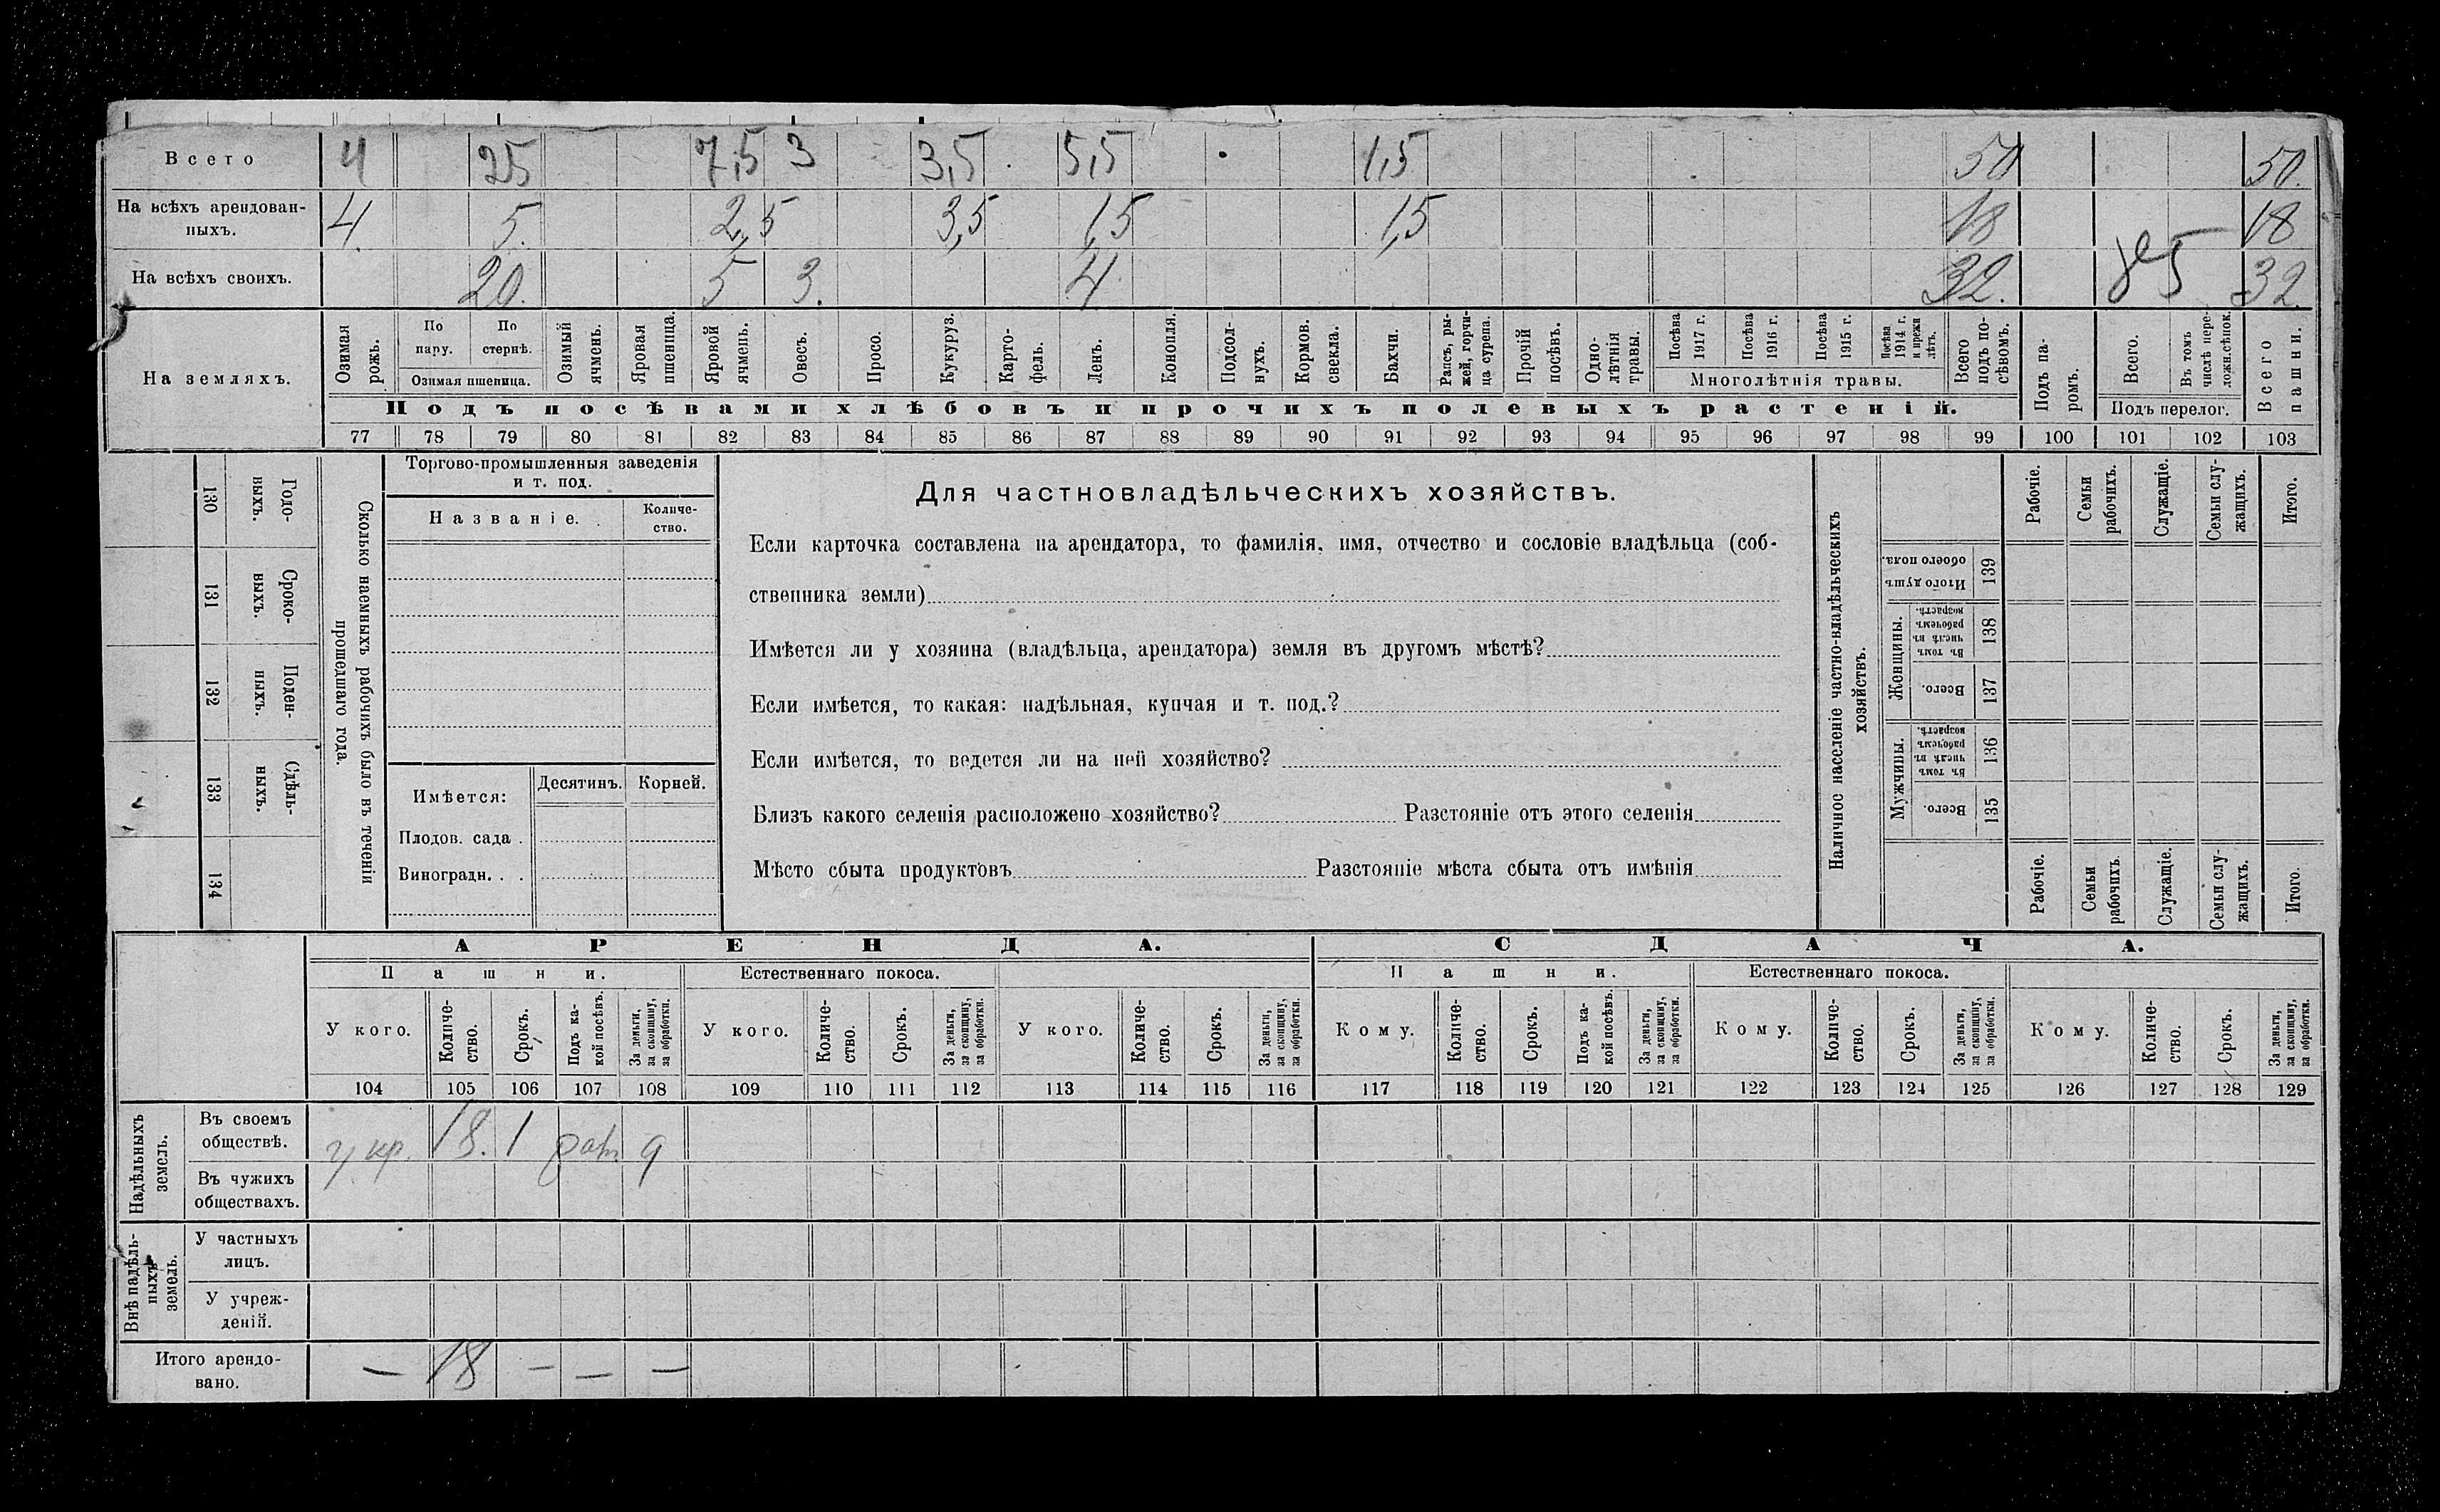 Всего 4 25 7,5 3 3,5 5,5 1,5 50 50.
На всѣхъ арендован-
ныхъ. 4. 5. 2,5 3,5 1,5 1,5 18 18
На всѣхъ своихъ. 20. 5 3. 4 32. 32.
На земляхъ.
Озимая рожь.
По пару.
По стернѣ.
Озимая пшеница.
Озимый ячмень.
Яровая пшеница.
Яровой ячмень.
Овесъ.
Просо.
Кукуруз.
Карто-
фель.
Ленъ.
Конопля.
Подсол-
нухъ.
Кормов. свекла.
Бахчи.
Рапсъ, ры-
жей, горчи-
ца сурепа.
Прочій посѣвъ.
Одно-
лѣтнія
травы.
Посѣва 1917 г.
Посѣва 1916 г.
Посѣва 1915 г.
Посѣва 1914 г. и прежн лѣтъ.
Многолѣтнія травы.
Всего подъ по-
сѣвомъ.
Подъ па-
ромъ.
Всего.
Въ томъ числѣ пере-
ложн.сѣнок.
Подъ перелог.
Всего пашни.
Подъ посѣвами хлѣбовъ и прочихъ полевыхъ растеній.
77 78 79 80 81 82 83 84 85 86 87 88 89 90 91 92 93 94 95 96 97 98 99 100 101 102 103
130 Годо-
ныхъ.
131 Сроко-
ныхъ.
132 Поден-
ныхъ.
133 Сдѣль-
ныхъ.
134
Сколько наемныхъ рабочихъ было въ теченіи
прошедшаго года.
Торгово-промышленныя заведенія
и т. под.
Названіе.
Количе-
ство.
Имѣется: Десятинъ. Корней.
Плодов. сада .
Виноградн. . .
Для частновладѣльческихъ хозяйствъ.
Если карточка составлена на арендатора, то фамилія, имя, отчество и сословіе владѣльца (соб-
ственника земли)
Имѣется ли у хозяина (владѣльца, арендатора) земля въ другомъ мѣстѣ?
Если имѣется, то какая: надѣльная, купчая и т. под.?
Если имѣется, то ведется ли на ней хозяйство?
Близъ какого селенія расположено хозяйство? Разстояніе отъ этого селенія
Мѣсто сбыта продуктовъ Разстояніе мѣста сбыта отъ имѣнія
Наличное населеніе частно-владѣльческихъ
хозяйствъ.
Рабочіе.
Семьи рабочихъ.
Служащіе.
Семьи слу-
жащихъ.
Итого.
Итого душъ обоего пола. 139
Женщины.
Въ томъ числѣ въ рабочемъ возрастѣ. 138
Всего. 137
Мужчины.
Въ томъ числѣ въ рабочемъ возрастѣ. 136
Всего. 135
Рабочіе.
Семьи рабочихъ.
Служащіе.
Семьи слу-
жащихъ.
Итого.
АРЕНДА. СДАЧА.
Пашни. Естественнаго покоса. Пашни. Естественнаго покоса.
У кого. Количе-
ство. Срокъ. Подъ ка-
кой посѣвъ. За деньги, за скопщину, за обработки. У кого. Количе-
ство. Срокъ. За деньги, за скопщину, за обработки. У кого. Количе-
ство. Срокъ. За деньги, за скопщину, за обработки. Кому. Количе-
ство. Срокъ. Подъ ка-
кой посѣвъ. За деньги, за скопщину, за обработки. Кому. Количе-
ство. Срокъ. За деньги, за скопщину, за обработки. Кому. Количе-
ство. Срокъ. За деньги, за скопщину, за обработки.
104 105 106 107 108 109 110 111 112 113 114 115 116 117 118 119 120 121 122 123 124 125 126 127 128 129
Надѣльныхъ
земель.
Въ своемъ
обществѣ. у кр. 18. 1
Въ чужихъ
обществахъ.
Внѣ надѣль-
ныхъ
земель.
У частныхъ
лицъ.
У учреж-
деній.
Итого арендо-
вано. — 18 — — —